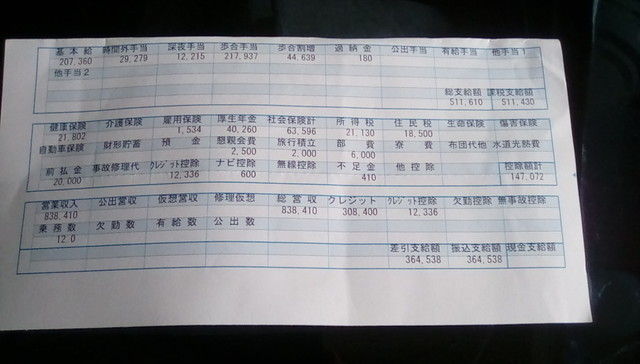 基本給 時間外手当 深夜手当 歩合手当 歩合割増 過納金 公出手当 有給手当 他手当1
207,360 29,279 12,215 217,937 44,639 180
他手当2
総支給額 課税支給額
511,610 511,430
健康保険 介護保険 雇用保険 厚生年金 社会保険計 所得税 住民税 生命保険 傷害保険
21,802 1,534 40,260 63,596 21,130 18,500
自動車保険 財形貯蓄 預金 懇親会費 旅行積立 部費 寮費 布団代他 水道光熱費
2,500 2,000 6,000
前払金 事故修理代 クレジット控除 ナビ控除 無線控除 不足金 他控除 控除額計
20,000 12,336 600 410 147,072
営業収入 公出営収 仮想営収 修理仮想 総営収 クレジット クレジット控除 欠勤控除 無事故控除
838,410 838,410 308,400 12,336
乗務数 欠勤数 有給数 公出数
12.0
差引支給額 振込支給額 現金支給額
364,538 364,538